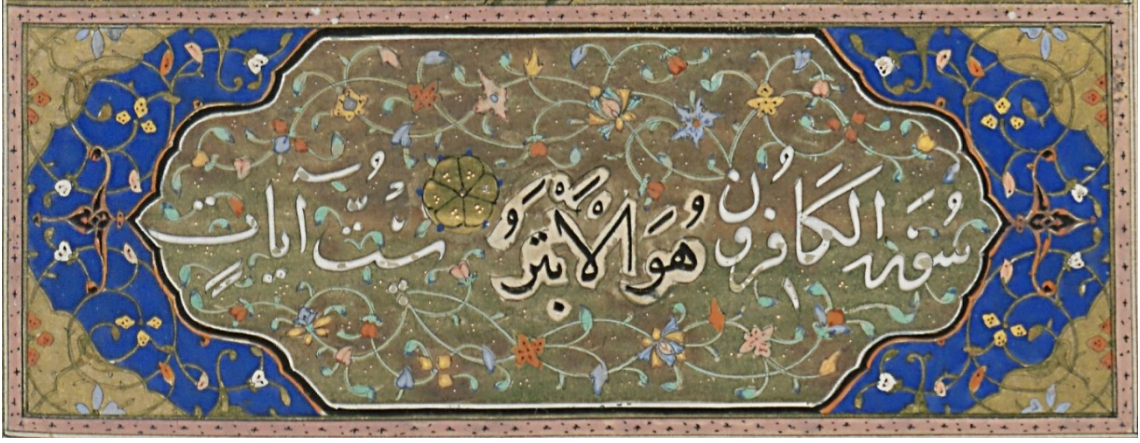 سُورَة الكَافِرُونَ هُوَ الْأَبْتَرُ سِتُّ آيَاتٍ